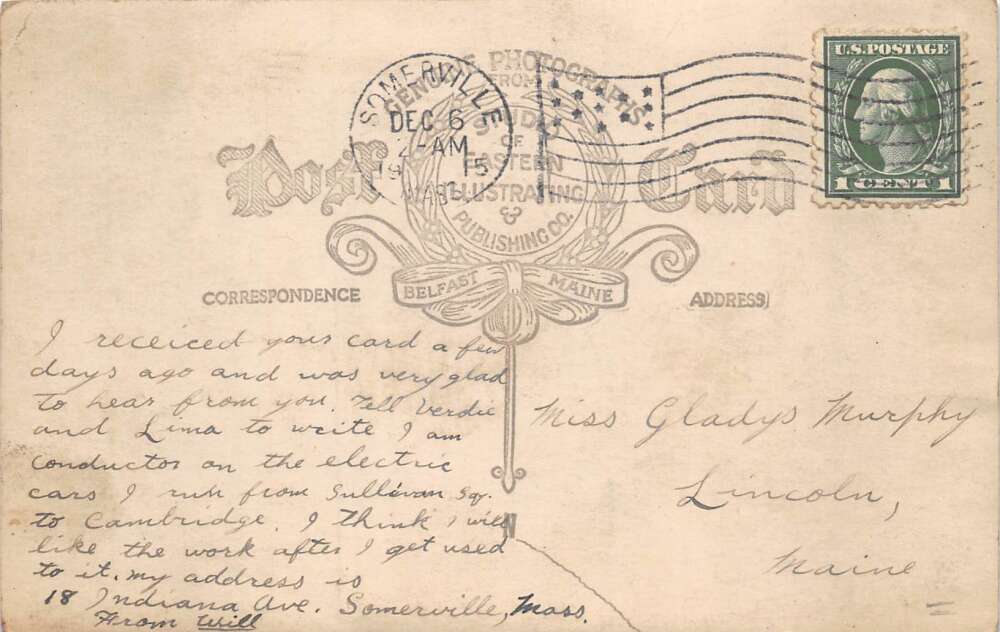 GENUINE PHOTOGRAPHS
FROM
OF
EASTERN
ILLUSTRATING
&
PUBLISHING CO.
BELFAST MAINE
Post Card
SOMERVILLE
DEC 6
2-AM
1915
MASS.
U.S. POSTAGE
1 CENT 1
CORRESPONDENCE
ADDRESS
I receiced your card a few
days ago and was very glad
to hear from you. Tell Verdie
and Lima to write I am
conductor on the electric
cars I run from Sullivan Sq.
to Cambridge. I think I will
like the work after I get used
to it. my address is
18 Indiana Ave. Somerville, Mass.
From Will
Miss Gladys Murphy
Lincoln,
Maine
N